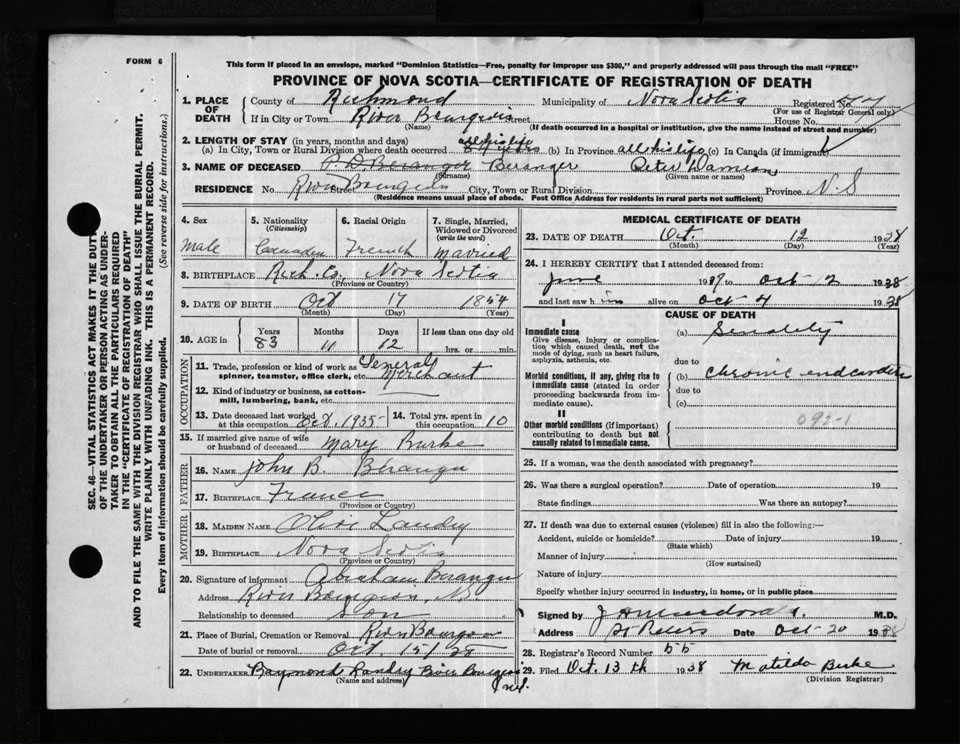 FORM 6
This form if placed in an envelope, marked "Dominion Statistics—Free, penalty for improper use $300," and properly addressed will pass through the mail "FREE"
PROVINCE OF NOVA SCOTIA—CERTIFICATE OF REGISTRATION OF DEATH
SEC. 46—VITAL STATISTICS ACT MAKES IT THE DUTY
OF THE UNDERTAKER OR PERSON ACTING AS UNDER-
TAKER TO OBTAIN ALL THE PARTICULARS REQUIRED
IN THE "CERTIFICATE OF REGISTRATION OF DEATH"
AND TO FILE THE SAME WITH THE DIVISION REGISTRAR WHO SHALL ISSUE THE BURIAL PERMIT.
WRITE PLAINLY WITH UNFADING INK. THIS IS A PERMANENT RECORD.
Every item of information should be carefully supplied. (See reverse side for instructions.)
1. PLACE OF DEATH County of Richmond Municipality of Nova Scotia Registered No.
(For use of Registrar General only.)
If in City or Town River Bourgeois Street House No.
(Name) (If death occurred in a hospital or institution, give the name instead of street and number)
2. LENGTH OF STAY (in years, months and days)
(a) In City, Town or Rural Division where death occurred all his life (b) In Province all his life (c) In Canada (if immigrant)
3. NAME OF DECEASED P. D. Beranger Beranger Peter Damian
(Surname) (Given name or names)
RESIDENCE No. River Street Bourgeois City, Town or Rural Division Province N.S
(Residence means usual place of abode. Post Office Address for residents in rural parts not sufficient)
4. Sex Male
5. Nationality (Citizenship) Canadian
6. Racial Origin French
7. Single, Married, Widowed or Divorced (write the word) Married
8. BIRTHPLACE Rich. Co. Nova Scotia
(Province or Country)
9. DATE OF BIRTH Oct 17 1854
(Month) (Day) (Year)
10. AGE in Years 83 Months 11 Days 12 If less than one day old hrs. or min.
OCCUPATION
11. Trade, profession or kind of work as spinner, teamster, office clerk, etc. General Merchant
12. Kind of industry or business, as cotton-mill, lumbering, bank, etc.
13. Date deceased last worked at this occupation Oct. 1935
14. Total yrs. spent in this occupation 10
15. If married give name of wife or husband of deceased Mary Burke
FATHER
16. NAME John B. Beranger
17. BIRTHPLACE France
(Province or Country)
MOTHER
18. MAIDEN NAME Olive Landry
19. BIRTHPLACE Nova Scotia
(Province or Country)
20. Signature of informant Abraham Beranger
Address River Bourgeois, N.S.
Relationship to deceased Son
21. Place of Burial, Cremation or Removal River Bourgeois
Date of burial or removal Oct. 15/38
22. UNDERTAKER Raymond Landry River Bourgeois
(Name and address)
MEDICAL CERTIFICATE OF DEATH
23. DATE OF DEATH Oct. 12 1938
(Month) (Day) (Year)
24. I HEREBY CERTIFY that I attended deceased from:
June 1937 to Oct 2 1938
and last saw him alive on Oct 4 1938
CAUSE OF DEATH
I
Immediate cause
Give disease, injury or complication which caused death, not the mode of dying, such as heart failure, asphyxia, asthenia, etc.
(a) Senility
due to
Morbid conditions, if any, giving rise to immediate cause (stated in order proceeding backwards from immediate cause).
(b) Chronic endocarditis
due to
(c)
II
Other morbid conditions (if important) contributing to death but not causally related to immediate cause.
093-1
25. If a woman, was the death associated with pregnancy?
26. Was there a surgical operation? Date of operation 19
State findings Was there an autopsy?
27. If death was due to external causes (violence) fill in also the following:—
Accident, suicide or homicide? Date of injury 19
(State which)
Manner of injury
(How sustained)
Nature of injury
Specify whether injury occurred in industry, in home, or in public place
Signed by J A Macdonald. M.D.
Address St Peters Date Oct-20 1938
28. Registrar's Record Number 55
29. Filed Oct. 13th 1938 Matilda Burke
(Division Registrar)